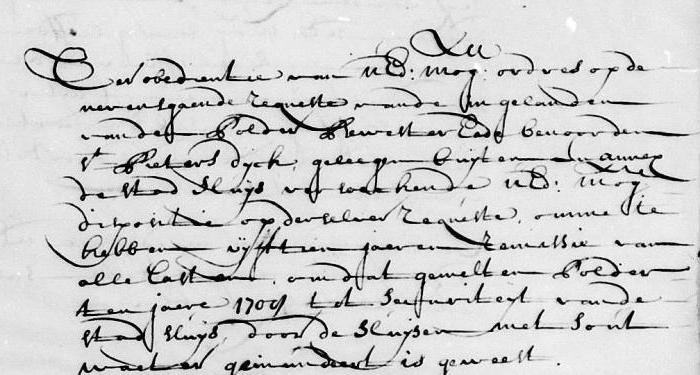 Ter obedientie van UEd: Mog: ordres op de
nevensgaende requeste van de Ingelanden
van den Polder Bewester Eede benoorden
St Pieters Dyck, geleegen buyten en annex
de stad Sluys versoekende UEd: Mog:
dispositie op deselve requeste, omme te
hebben vyfftien jaeren remissie van
alle lasten, omdat gemelten Polder
ten jaere 1704 tot securiteyt van de
stad Sluys, door de Sluysen met sout
waeter geinundeert is geweest.